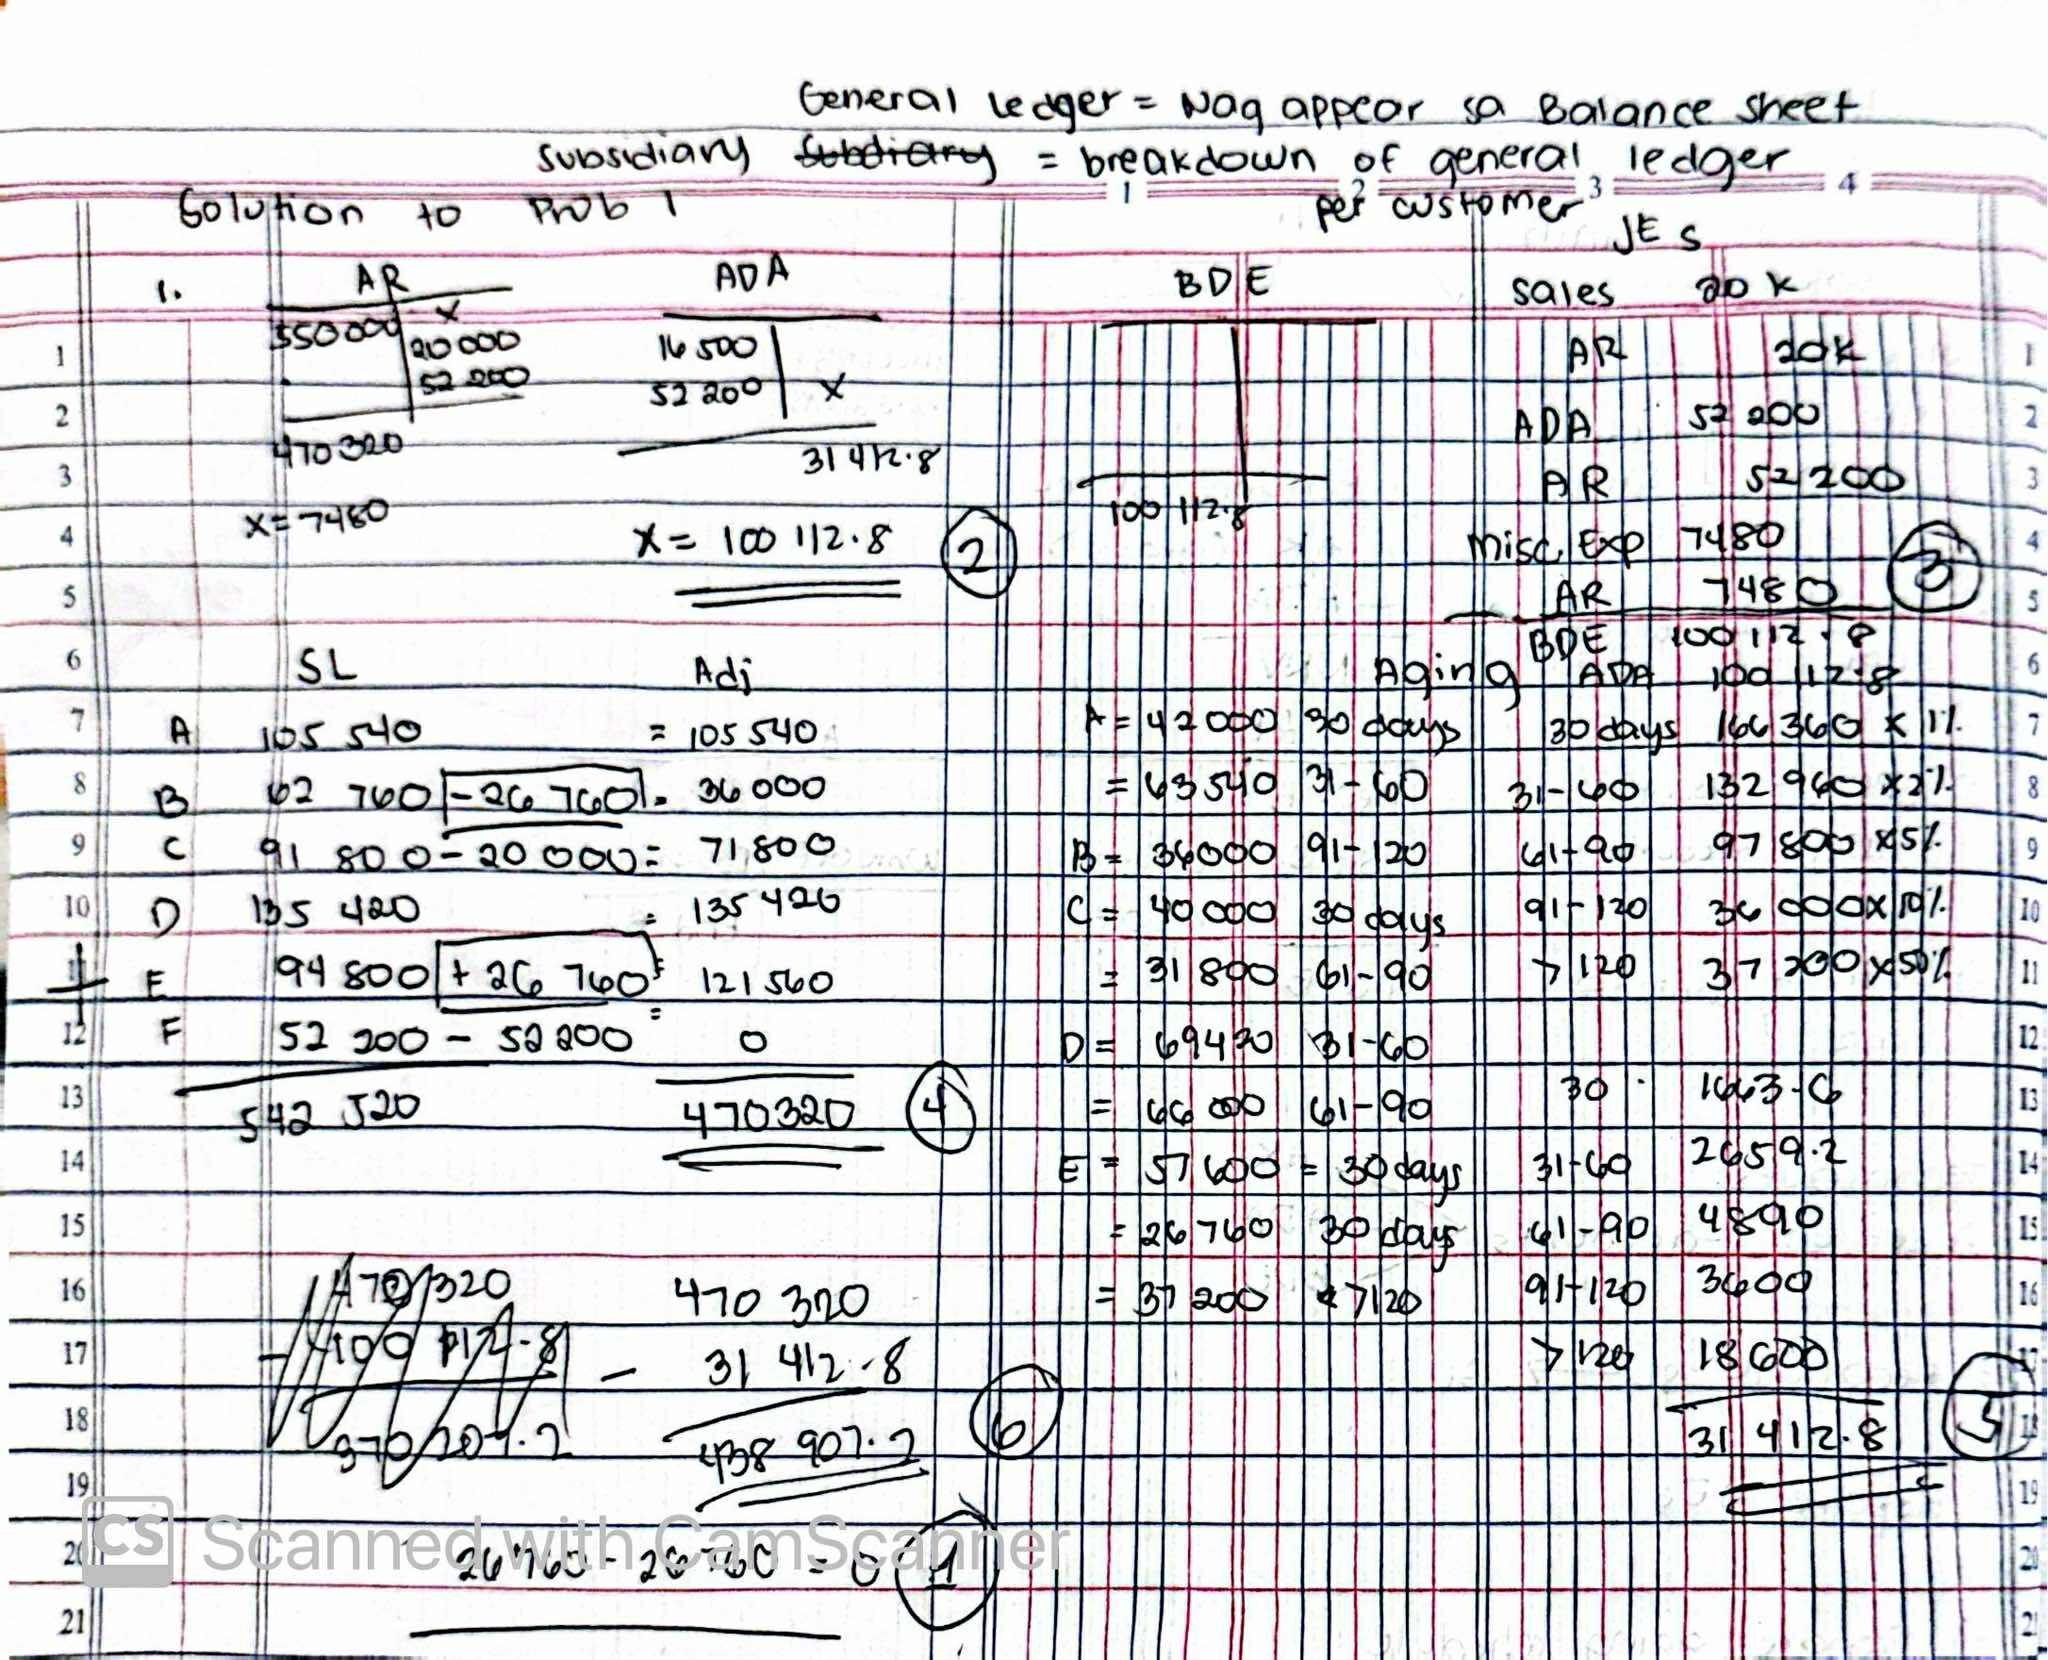 General Ledger = Nag appear sa Balance Sheet
Subsidiary = breakdown of general ledger
per customer
1 2 3 4
Solution to Prob 1
JE s
1.
AR
x
550 000
20 000
52 200
470 320
x = 7480
ADA
16 500
52 200 x
31 412.8
x = 100 112.8
2
BDE
100 112.8
Sales 20 K
AR 20K
ADA 52 200
AR 52 200
Misc. Exp 7480
AR 7480
3
BDE 100 112.8
ADA 100 112.8
SL Adj
A 105 540 = 105 540
B 62 760 - 26 760 = 36 000
C 91 800 - 20 000 = 71 800
D 135 420 = 135 420
E 94 800 + 26 760 = 121 560
F 52 200 - 52 200 = 0
542 520 470 320
4
Aging
A = 42 000 30 days
= 63 540 31-60
B = 36000 91-120
C = 40 000 30 days
= 31 800 61-90
D = 69420 31-60
= 66 000 61-90
E = 57 600 = 30 days
= 26 760 30 days
= 37 200 >120
30 days 166 360 x 1%
31-60 132 960 x 2%
61-90 97 800 x 5%
91-120 36 000 x 10%
> 120 37 200 x 50%
30 1663.6
31-60 2659.2
61-90 4890
91-120 3600
> 120 18 600
31 412.8
5
470 320
- 100 112.8
370 207.2
470 320
- 31 412.8
438 907.2
6
26 760 - 26 760 = 0
1
1
2
3
4
5
6
7
8
9
10
11
12
13
14
15
16
17
18
19
20
21
1
2
3
4
5
6
7
8
9
10
11
12
13
14
15
16
18
19
20
21
CS Scanned with CamScanner